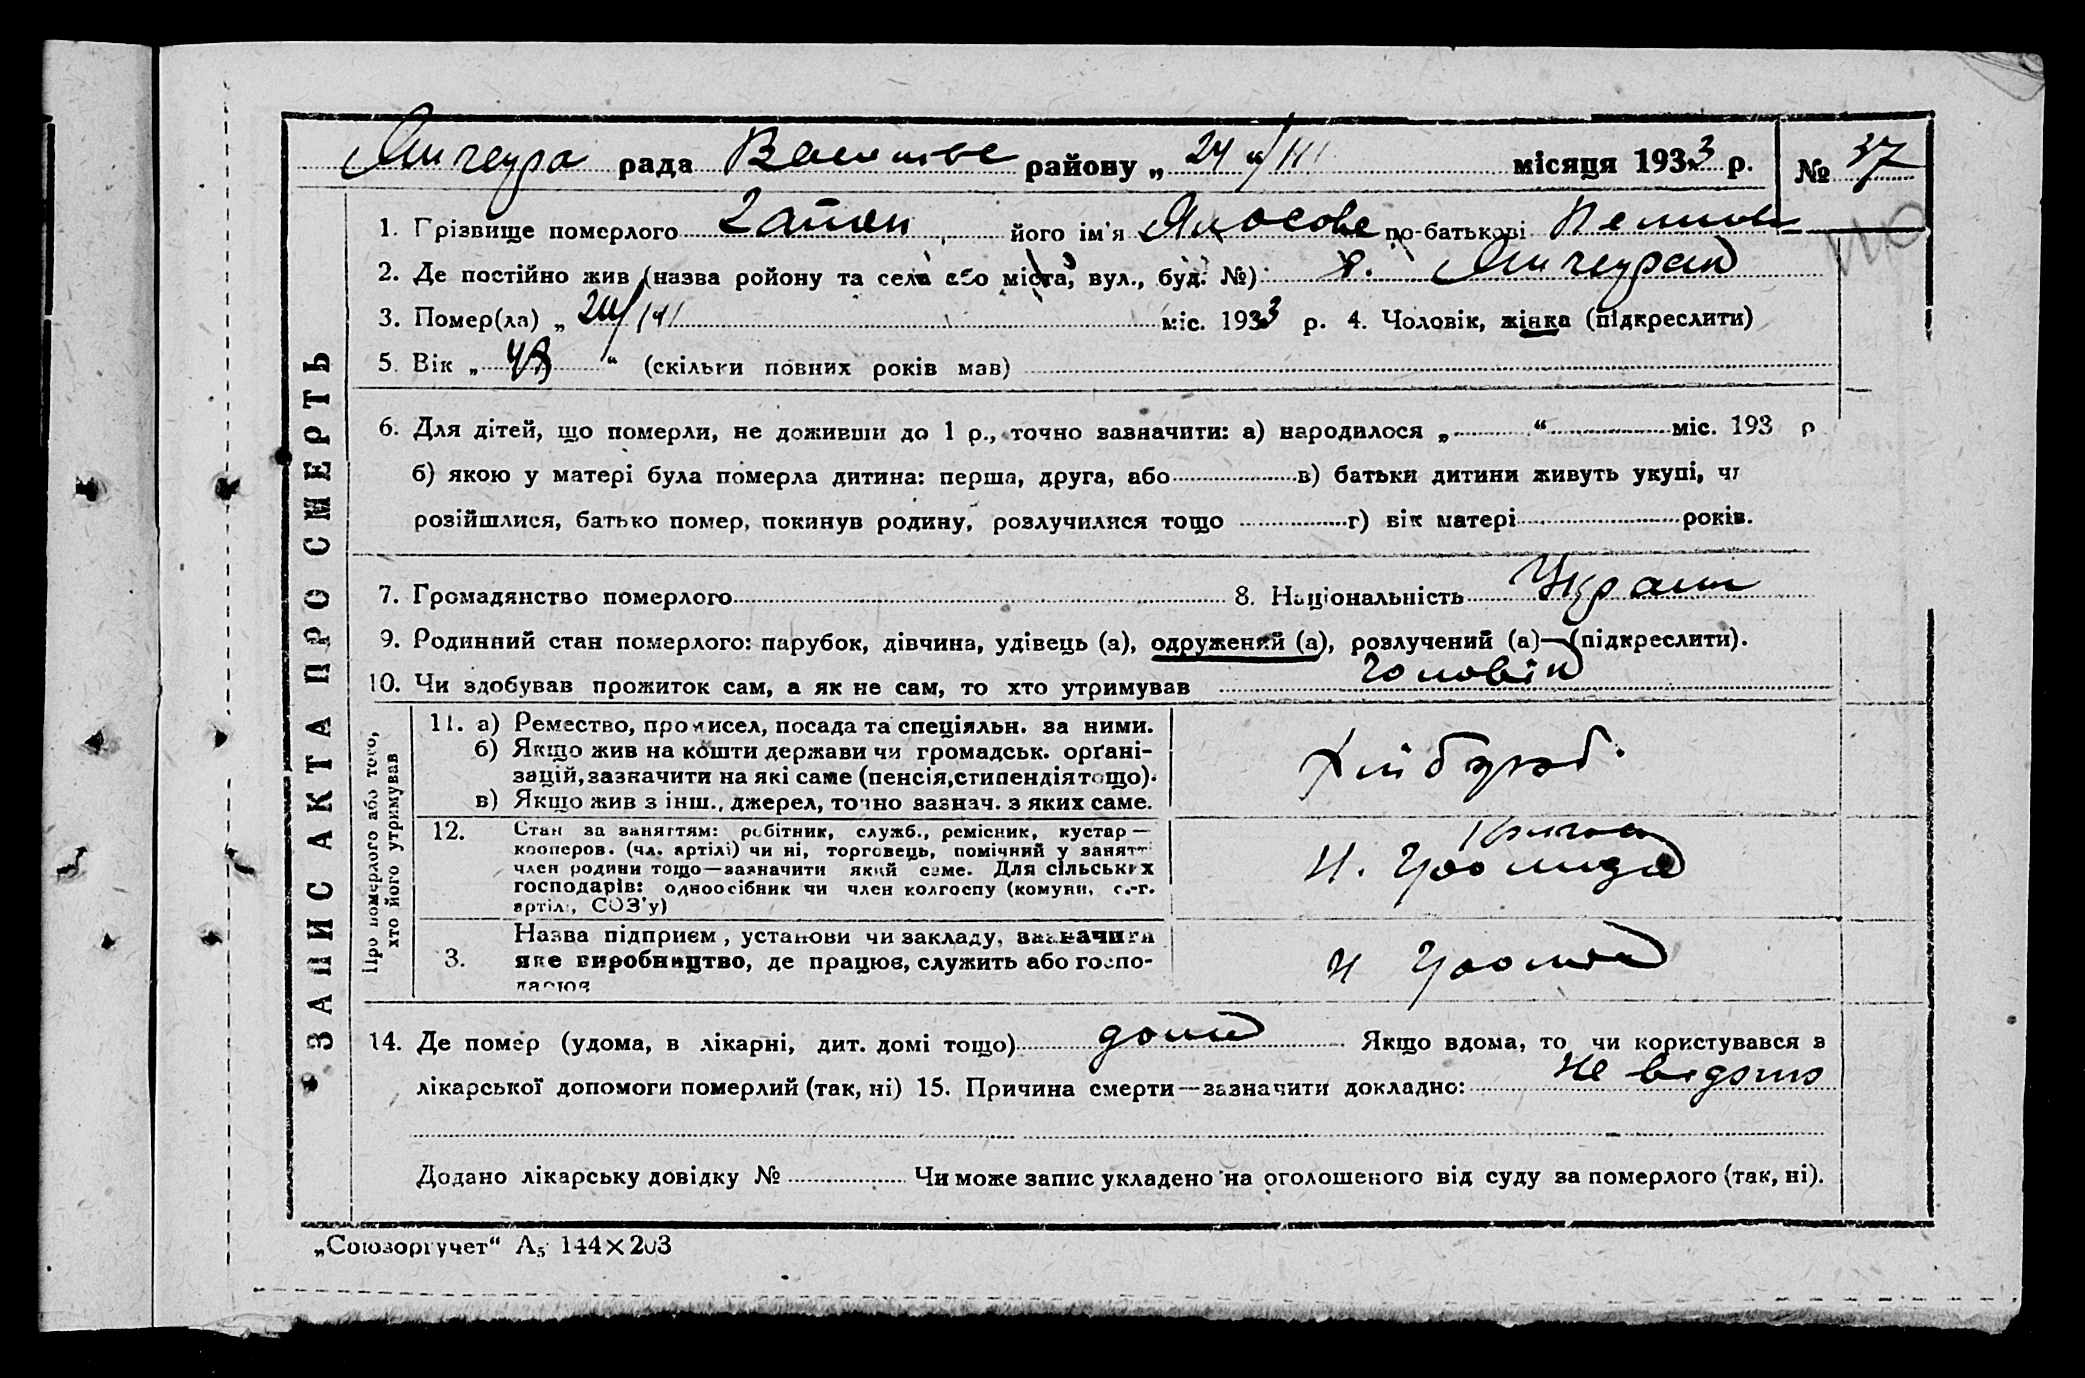 рада району „ 24 “/III місяця 1933 р. № 37
1. Прізвище померлого його ім'я по-батькові
2. Де постійно жив (назва ройону та села або міста, вул., буд. №)
3. Помер(ла) „ 24/III міс. 1933 р. 4. Чоловік, жінка (підкреслити)
5. Вік „ “ (скільки повних років мав)
6. Для дітей, що померли, не доживши до 1 р., точно зазначити: а) народилося „ “ міс. 193 р
б) якою у матері була померла дитина: перша, друга, або в) батьки дитини живуть укупі, чи
розійшлися, батько помер, покинув родину, розлучилися тощо г) вік матері років.
7. Громадянство померлого 8. Національність Україн
9. Родинний стан померлого: парубок, дівчина, удівець (а), одружений (а), розлучений (а)—(підкреслити).
10. Чи здобував прожиток сам, а як не сам, то хто утримував чоловік
ЗАПИС АКТА ПРО СМЕРТЬ
Про померлого або того, хто його утримував
11. а) Ремество, промисел, посада та спеціяльн. за ними.
б) Якщо жив на кошти держави чи громадськ. орґані-
зацій, зазначити на які саме (пенсія, стипендія тощо).
в) Якщо жив з інш., джерел, точно зазнач. з яких саме.
Хлібороб.
12. Стан за заняттям: робітник, служб., ремісник, кустар—
кооперов. (чл. артілі) чи ні, торговець, помічний у занятті
член родини тощо—зазначити який саме. Для сільських
господарів: одноосібник чи член колгоспу (комуни, с.-г.
артілі, СОЗ'у)
3. Назва підприєм., установи чи закладу, зазначити
яке виробництво, де працює, служить або госпо-
дарює
14. Де помер (удома, в лікарні, дит. домі тощо) дома Якщо вдома, то чи користувався з
лікарської допомоги померлий (так, ні) 15. Причина смерти—зазначити докладно: Не відомо
Додано лікарську довідку № Чи може запис укладено на оголошеного від суду за померлого (так, ні).
„Союзоргучет“ А5 144×203